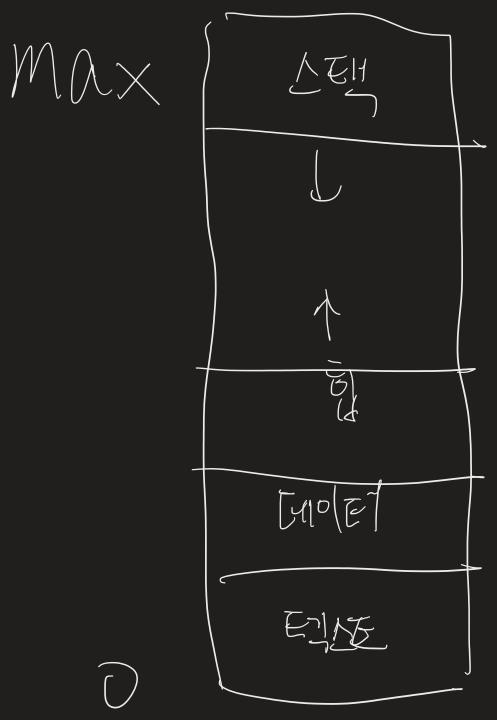 max
스택
힙
데이터
텍스트
0